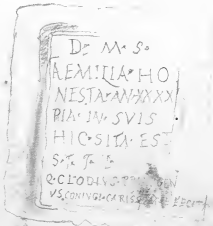 D · M · S ·
AEMILIA · HO
NESTA · AN · XXXX
PIA · IN · SVIS
HIC · SITA · EST
S · T · T · L ·
Q · CLODIVS
VS · CONIVGI · CARISS FECIT